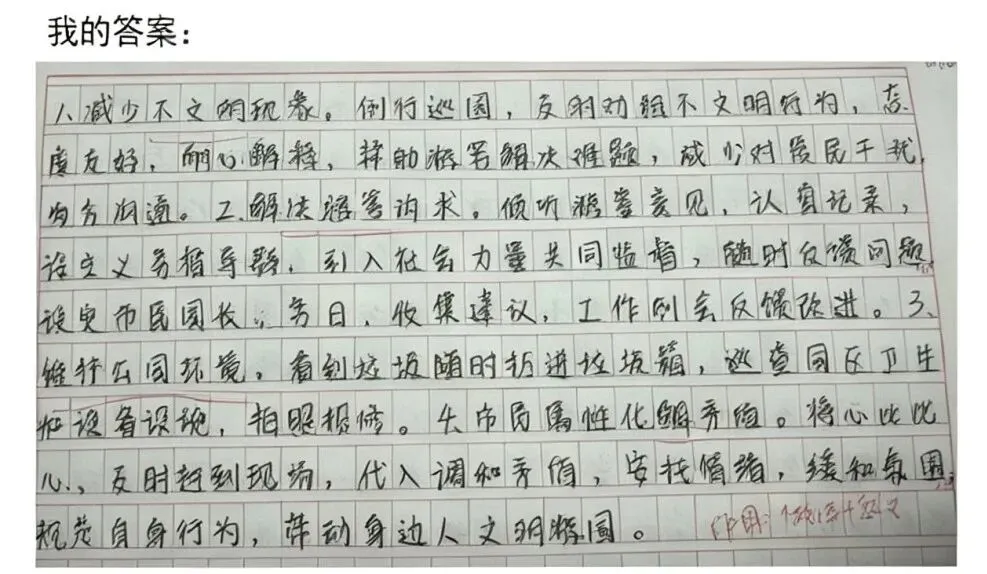 我的答案：
1、减少不文明现象。例行巡园，及时劝阻不文明行为，态
度友好，耐心解释，帮助游客解决难题，减少对居民干扰，
沟通。2、解决游客诉求。倾听游客意见，认真记录，
设立义务指导群，引入社会力量共同监督，随时反馈问题
设 市民园长 日，收集建议，工作例会反馈改进。3、
维护公园环境。看到垃圾随时扔进垃圾箱，巡查园区卫生
和设备设施，拍照报修。4、市民属性化解矛盾。将心比比
心、及时赶到现场，代入调和矛盾，安抚情绪，缓和氛围
规范自身行为，带动身边人文明游园。
作用：